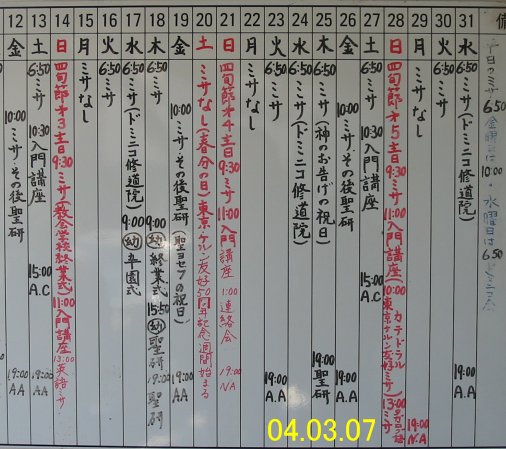 12 金 10:00 ミサ・その後聖研 19:00 AA
13 土 6:50 ミサ 10:30 入門講座 15:00 A.C 19:00 AA
14 日 四旬節才3主日 9:30 ミサ(教会学校終業式) 11:00 入門講座 13:00 英語ミサ
15 月 ミサなし
16 火 6:50 ミサ
17 水 6:50 ミサ(ドミニコ修道院) 9:00 ㊗幼 卒園式
18 木 6:50 ミサ 9:00 幼 終業式 15:50 幼 聖研 19:00 聖研
19 金 10:00 ミサ・その後聖研(聖ヨセフの祝日) 19:00 AA
20 土 ミサなし(春分の日) 東京・ケルン友好50周年記念週間始まる
21 日 四旬節才4主日 9:30 ミサ 11:00 入門講座 1:00 連絡会 19:00 NA
22 月 ミサなし
23 火 6:50 ミサ 19:00 A.A
24 水 6:50 ミサ(ドミニコ修道院)
25 木 6:50 ミサ(神のお告げの祝日) 19:00 聖研
26 金 10:00 ミサ・その後聖研 19:00 A.A
27 土 6:50 ミサ 10:30 入門講座 15:00 A.C
28 日 四旬節才5主日 9:30 ミサ 11:00 入門講座 (10:00 カテドラル 東京ケルン友好ミサ) 13:00 ミサ
29 月 ミサなし 19:00 N.A
30 火 6:50 ミサ
31 水 6:50 ミサ(ドミニコ修道院) 19:00 A.A
備
平日のミサ 6:50
金曜日は 10:00・水曜日は 6:50
04.03.07